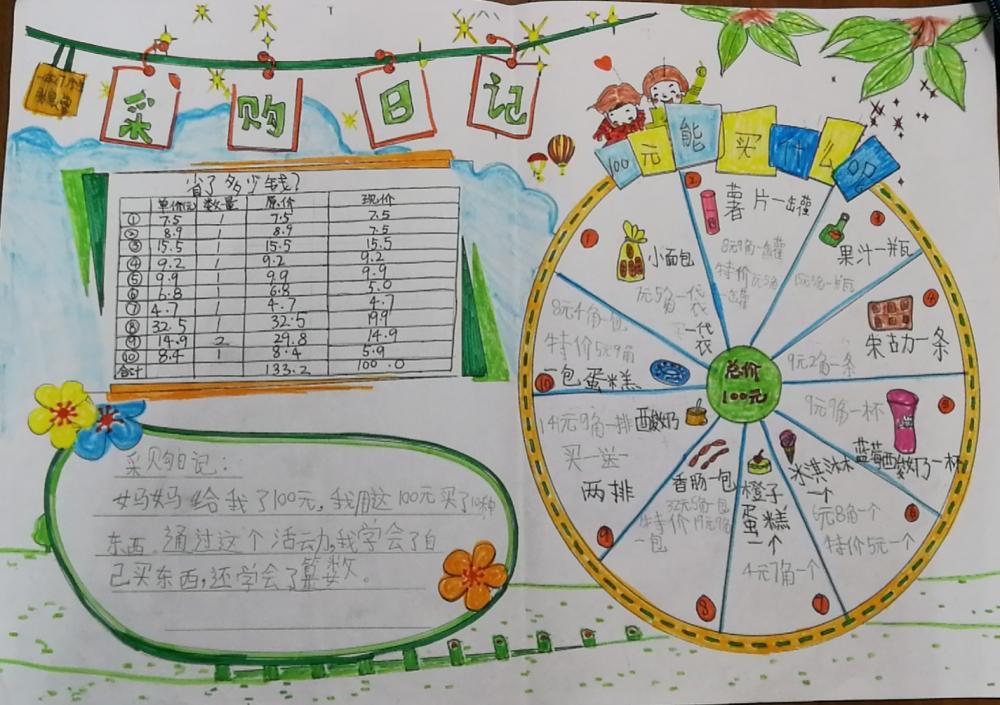 采购日记
100元能买什么
省了多少钱？
单价元 数量 原价 现价
① 7.5 1 7.5 7.5
② 8.9 1 8.9 7.5
③ 15.5 1 15.5 15.5
④ 9.2 1 9.2 9.2
⑤ 9.9 1 9.9 9.9
⑥ 6.8 1 6.8 5.0
⑦ 4.7 1 4.7 4.7
⑧ 32.5 1 32.5 19.9
⑨ 14.9 2 29.8 14.9
⑩ 8.4 1 8.4 5.9
合计 133.2 100.0
采购日记：
妈妈给我了100元，我用这100元买了10种
东西。通过这个活动，我学会了自
己买东西，还学会了算数。
总价
100元
1
小面包
7元5角一袋
一袋
2
薯片一罐
8元9角一罐
特价7元5角
一罐
3
果汁一瓶
15元5角一瓶
4
朱古力一条
9元2角一条
5
9元9角一杯
蓝莓酸奶一杯
6
冰淇淋
一个
6元8角一个
特价5元一个
7
橙子
蛋糕
一个
4元7角一个
8
香肠一包
32元5角一包
特价19元9角
一包
9
14元9角一排
酸奶
买一送一
两排
10
8元4角一包
特价5元9角
一包蛋糕